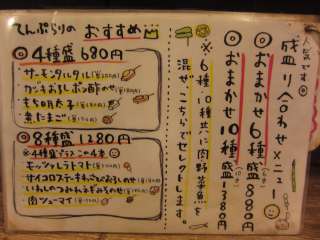 てんぷらりの おすすめ
◎ 4種盛 680円
サーモンタルタル
カキおろしポン酢のせ
もち明太子
煮たまご
◎ 8種盛 1280円
※4種盛プラス この4本
モッツァレラトマト
サイコロステーキわさびおろしのせ
いわしのつみれネギみそのせ
肉シューマイ
人気です
盛り合わせメニュー
◎おまかせ6種盛 880円
◎おまかせ10種盛 1380円
※6種、10種共に肉野菜魚を
混ぜ、こちらでセレクトします。